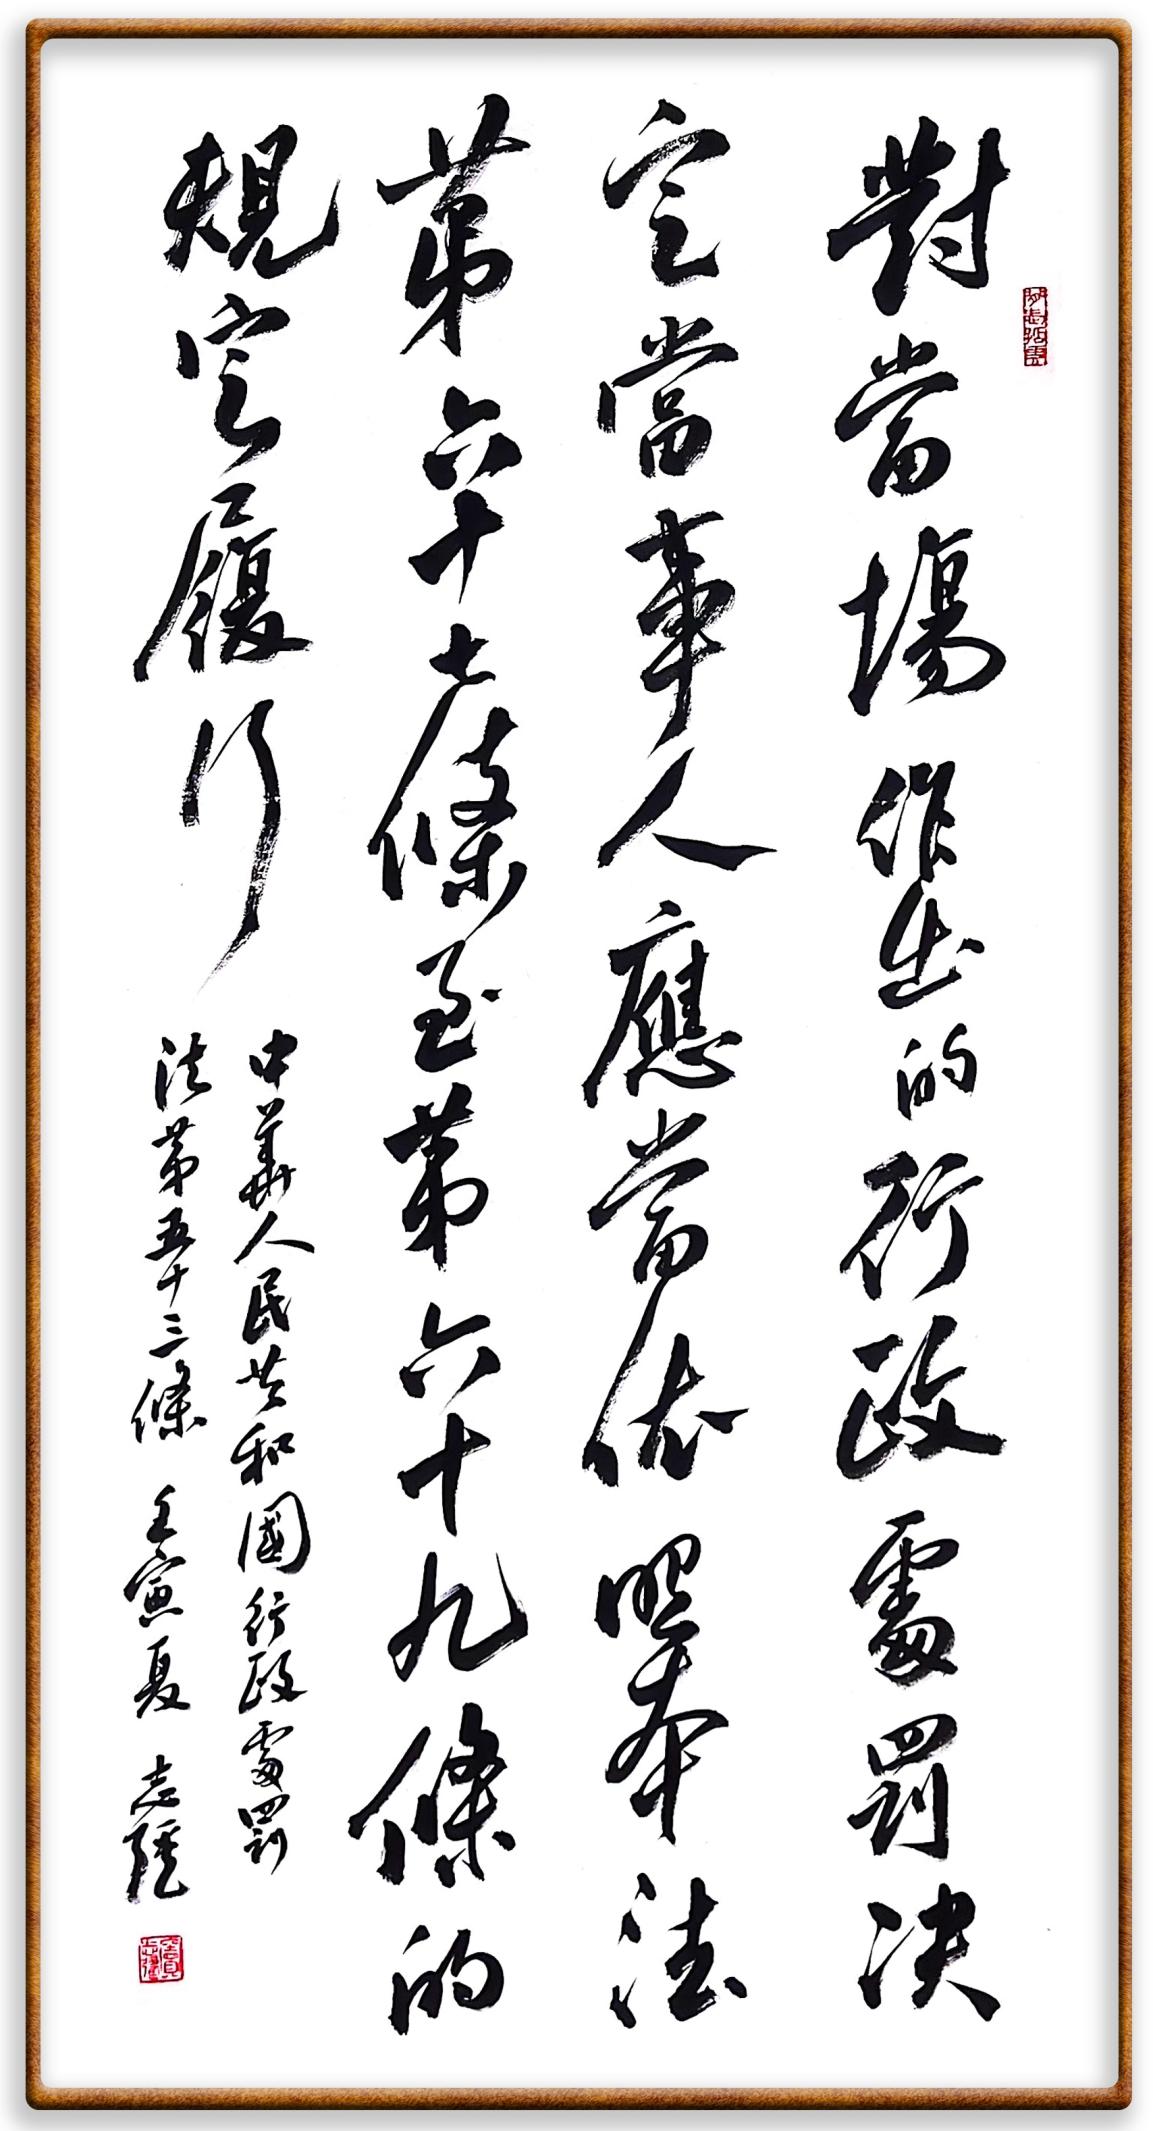 對當場作出的行政處罰決
定當事人應當依照本法
第六十七條至第六十九條的
規定履行
中華人民共和國行政處罰
法第五十三條 壬寅夏 志隆